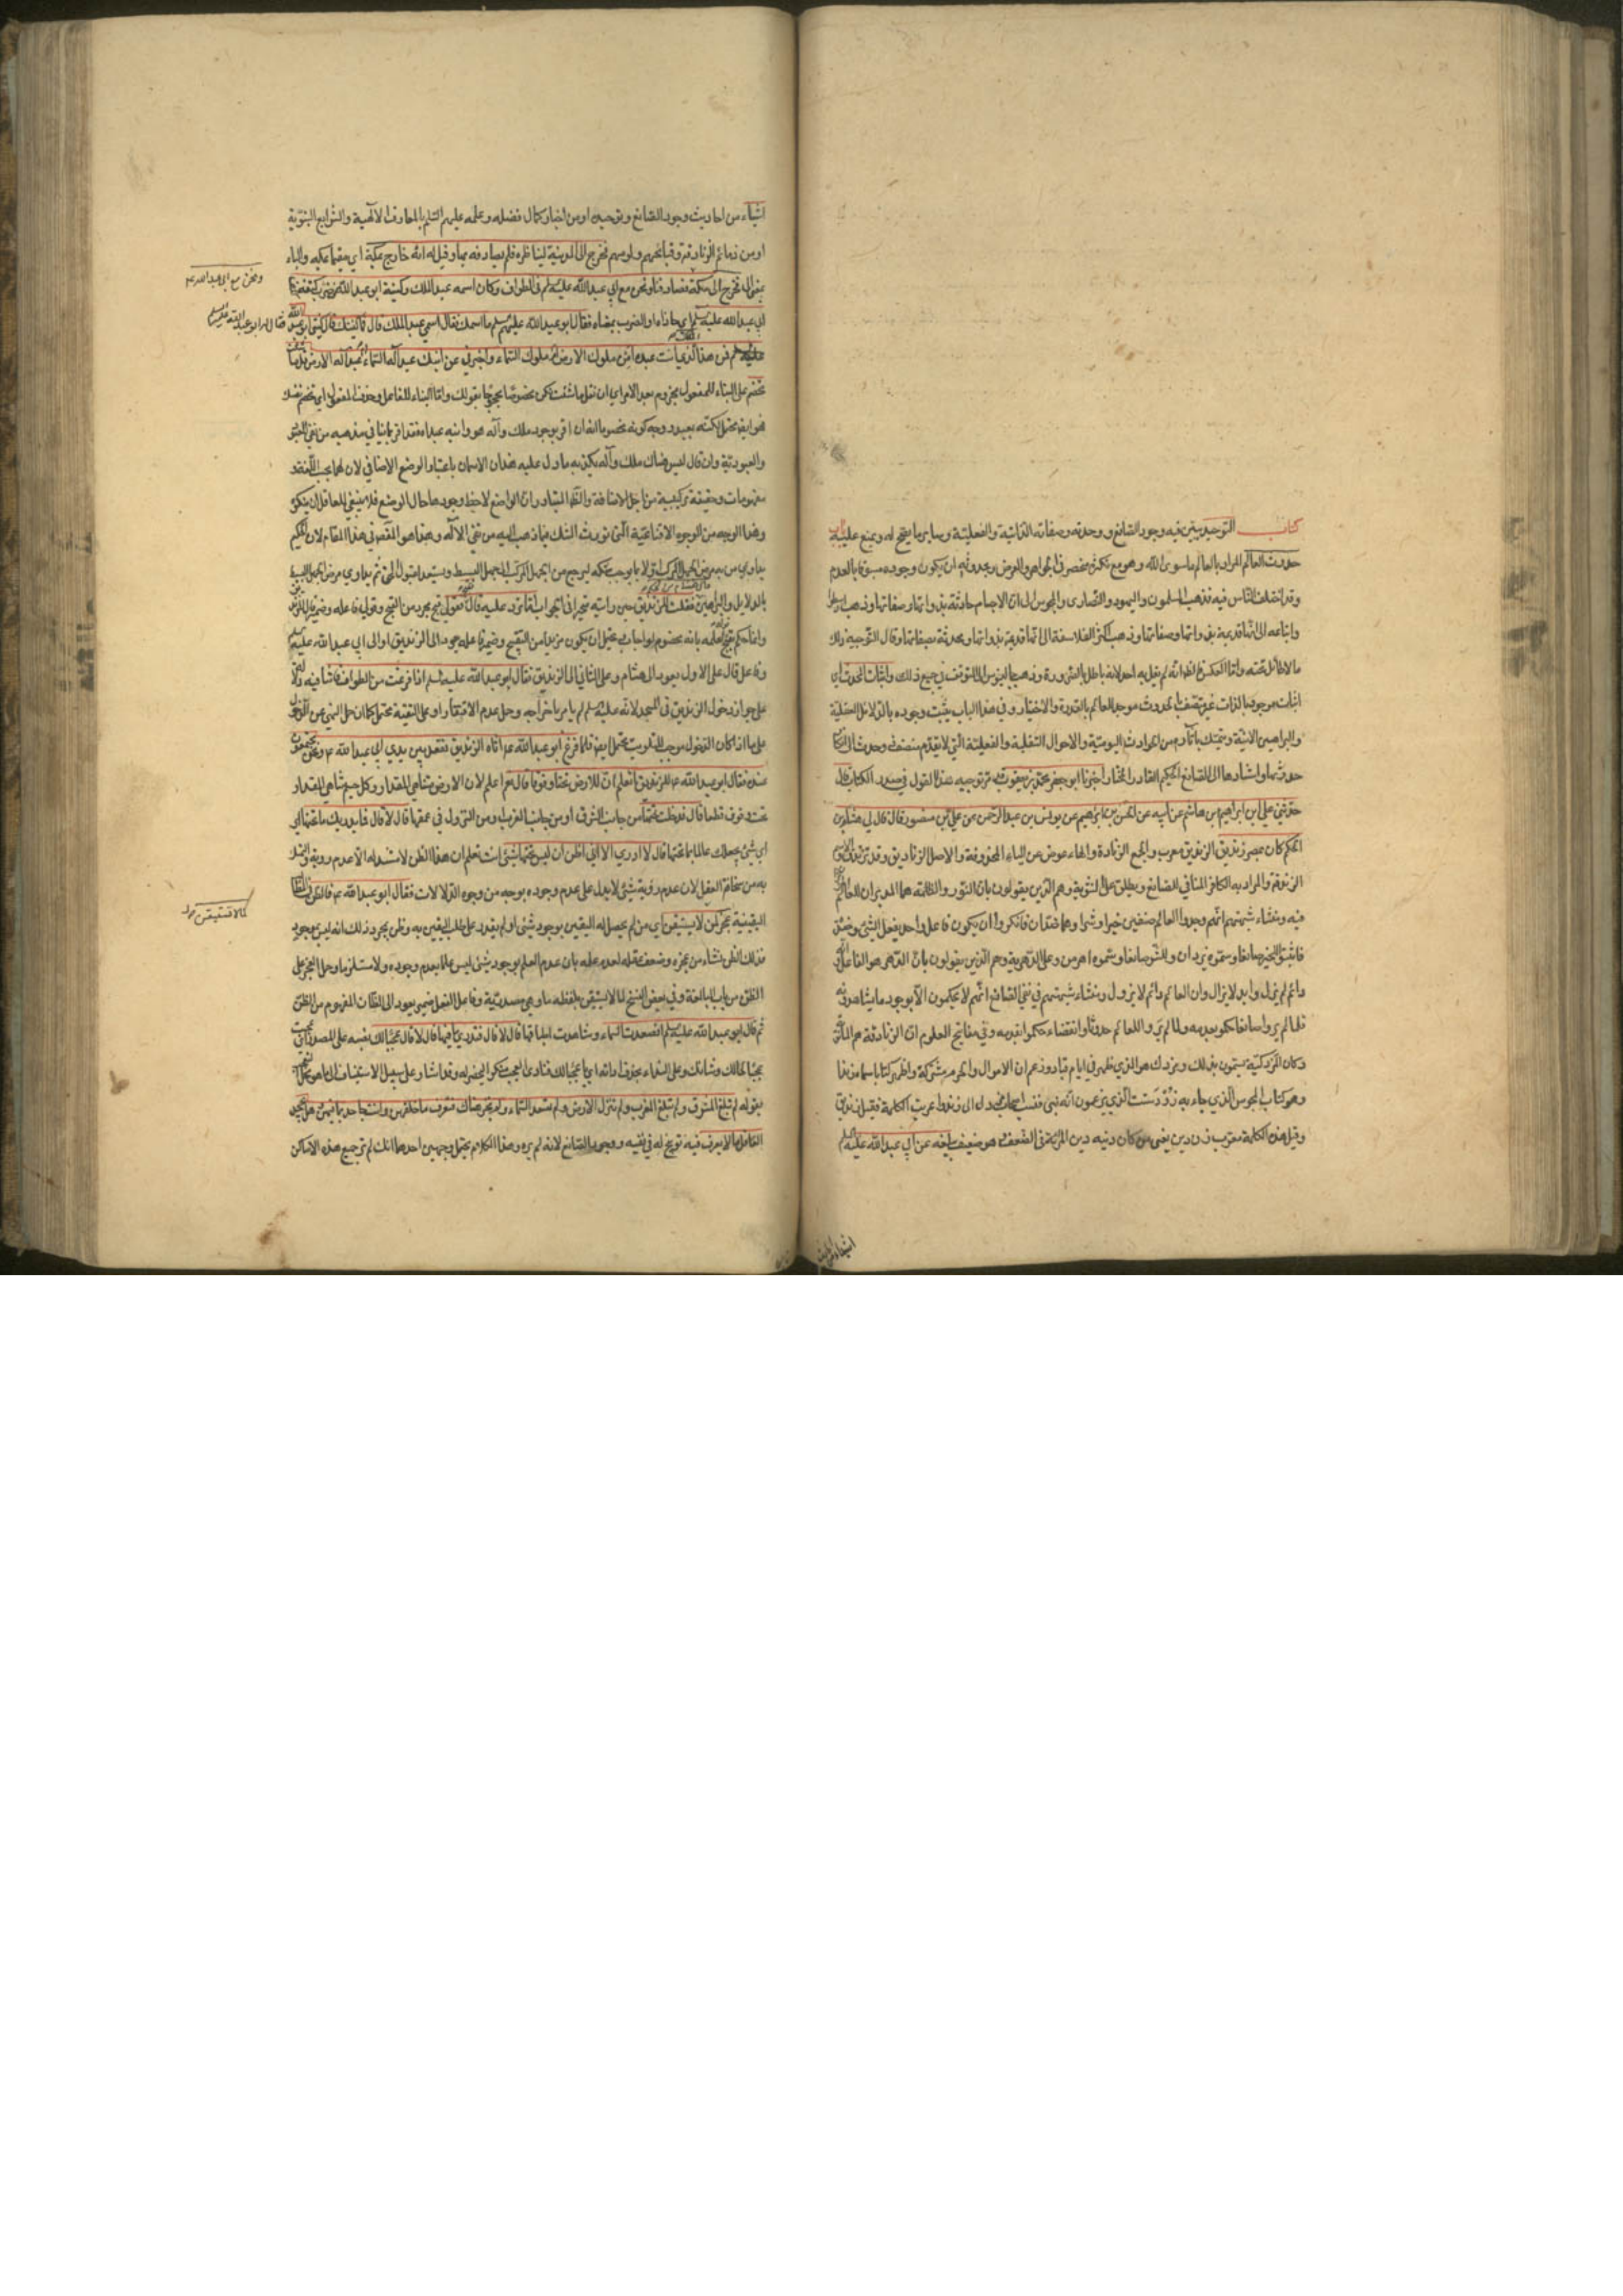 كتاب التوحيد يبين فيه وجود الصانع ووحدته وصفاته الذاتية والفعلية وساير ما يصح له ويمتنع عليه باب
حدوث العالم المراد بالعالم ما سوى الله وهو مع تكثره منحصر في الجواهر والعرض وحدوثه ان يكون وجوده مسبوقا بالعدم
وقد اختلف الناس فيه فذهب المسلمون واليهود والنصارى والمجوس الى ان الاجسام حادثة بذواتها وصفاتها وذهب ارسطو
واتباعه الى انها قديمة بذواتها وصفاتها وذهب اكثر الفلاسفة الى انها قديمة بذواتها ومحدثة بصفاتها وقال
ما لا طائل تحته واما العكس فالظاهر انه لم يقل به احد لانه باطل بالضرورة وذهب جالينوس الى التوقف في جميع ذلك واثبات المحدث اي
اثبات موجود بالذات غير متصف بالحدوث موجد للعالم بالقدرة والاختيار وفي هذا الباب يثبت وجوده بالدلائل العقلية
والبراهين الانية ويتمسك بآثاره من الحوادث اليومية والاحوال السفلية والفعلية التي
حدوثها واشار بها الى الصانع الحكيم القادر المختار اخبرنا ابو جعفر محمد بن يعقوب مر توجيه هذا القول في صدر الكتاب قال
حدثني علي بن ابراهيم بن هاشم عن ابيه عن الحسن بن ابراهيم عن يونس بن عبد الرحمن عن علي بن منصور قال قال لي هشام بن
الحكم كان بمصر زنديق الزنديق معرب والجمع الزنادقة والهاء عوض عن الياء المحذوفة والاصل الزناديق وقد تزندق والاسم
الزندقة والمراد به الكافر النافي للصانع ويطلق على الثنوية وهم الذين يقولون بان النور والظلمة هما المدبران للعالم
فيه ومنشاء شبهتهم انهم وجدوا العالم صنفين خيرا وشرا وهما ضدان فانكروا ان يكون فاعل واحد يفعل الشئ وضده
فاثبتوا للخير صانعا وسموه يزدان وللشر صانعا وسموه اهرمن وعلى الدهرية وهم الذين يقولون بان الدهر هو الفاعل
دائم لم يزل وابد لا يزال وان العالم دائم لا يزول ومنشاء شبهتهم في نفي الصانع انهم لا يحكمون الا بوجود ما يشاهدونه
فلما لم يروا صانعا حكموا بعدمه ولما لم يروا للعالم حدوثا وانقضاء حكموا بقدمه وفي مفاتيح العلوم ان الزنادقة هم المانوية
وكان المزدكية يسمون بذلك ومزدك هو الذي ظهر في ايام قباد وزعم ان الاموال والحرم مشتركة واظهر كتابا سماه زندا
وهو كتاب المجوس الذي جاء به زردشت الذي يزعمون انه نبي فنسب اصحاب مزدك الى زند وعربت الكلمة فقيل زنديق
وقيل هذه الكلمة معرب زن دين يعني من كان دينه دين المرأة في الضعف هو ضعيف يبلغه عن ابي عبد الله عليه السلم
اشياء من
اشياء من احاديث وجود الصانع وتوحيده او من اخبار كمال فضله وعلمه عليهم السلم بالمعارف الالهية والشرايع النبوية
او من ذمائم الزنادقة وقبائحهم ولومهم فخرج الى المدينة ليناظره فلم يصادفه بها وقيل له انه خارج بمكة اي مقيما بمكة والباء
بمعنى الى فخرج الى مكة فصادفنا ونحن مع ابي عبد الله عليه السلم في الطواف وكان اسمه عبد الملك وكنيته ابو عبد الله فضرب كتفه كتف
ابي عبد الله عليه السلم اي حاذاه او الضرب بمعناه فقال ابو عبد الله عليه السلم ما اسمك فقال اسمي عبد الملك قال فما كنيتك قال كنيتي ابو عبد الله
ونحن مع ابي عبد الله عم
فقال له ابو عبد الله عليه السلم
عليه السلم فمن هذا الملك الذي انت عبده امن ملوك الارض ام ملوك السماء واخبرني عن ابنك عبد اله السماء ام عبد اله الارض قل ما شئت
تخصم على البناء للمفعول مجزوم بعد الامر اي ان تقل ما شئت تكن مخصوما محجوجا بقولك واما البناء للفاعل وحذف المفعول اي تخصم نفسك
فهو ايضا محتمل لكنه بعيد ووجه كونه مخصوما انه ان اقر بوجود ملك واله هو وابنه عبداه فقد اقر بما ينافي مذهبه من نفي
والعبودية وان قال ليس هناك ملك واله يكذبه ما دل عليه هذان الاسمان باعتبار الوضع الاضافي لان
مفهومات وحقيقة تركيبية من اجل الاضافة والظاهر المتبادر ان الواضع لاحظ وجودها حال الوضع فلا ينبغي للعاقل ان ينكره
وهذا الوجه من الوجوه الاقناعية التي تورث الشك فيما ذهب اليه من نفي الاله وهذا هو المقصود في هذا المقام لان الحكيم
يداوي من به مرض الجهل المركب اولا بما يوجب شكه ليرجع من الجهل المركب الى الجهل البسيط ويستعد لقبول الحق ثم يداوي مرض الجهل البسيط
بالدلايل والبراهين فقلت للزنديق حين رايته متحيرا في الجواب اما ترد عليه قال فقبح قولي
وعلى قال على الاول يعود الى هشام وعلى الثاني الى الزنديق فقال ابو عبد الله عليه السلم اذا فرغت من الطواف فأتنا فيه دلالة
على جواز دخول الزنديق في المسجد لانه عليه السلم لم يأمر باخراجه وحمل عدم الاقتدار او على التقية محتمل كما ان حمل النهي عن الدخول
على ما اذا كان الدخول موجبا للتلويث محتمل ايضا فلما فرغ ابو عبد الله عم اتاه الزنديق فقعد بين يدي ابي عبد الله عم ونحن مجتمعون
عنده فقال ابو عبد الله عم للزنديق اتعلم ان للارض تحتا وفوقا قال نعم اعلم لان الارض متناهي المقدار وكل جسم متناهي المقدار
تحت وفوق قطعا قال فدخلت تحتها من جانب الشرق او من جانب الغرب او من النزول في عمقها قال لا قال فما يدريك ما تحتها اي
اي شئ يجعلك عالما بما تحتها قال لا ادري الا اني اظن ان ليس تحتها شئ انت تعلم ان هذا الظن لا مستند له الا عدم رؤيته
به من سخافة العقل لان عدم رؤية شئ لا يدل على عدم وجوده بوجه من وجوه الدلالات فقال ابو عبد الله عم فالظن
اليقينية عجز لمن لا يستيقن اي من لم يحصل له اليقين بوجود شئ او لم يقدر على طلب اليقين به وظن بمجرد ذلك انه ليس بموجود
لما لا تستيقن
فذلك الظن نشاء من عجزه وضعف عقله لعدم علمه بان عدم العلم بوجود شئ ليس علما بعدم وجوده ولا مستلزما وحمل العجز على
الظن من باب المبالغة وفي بعض النسخ لما لا يستيقن فلفظه ما وهي مصدرية وفاعل الفعل ضمير يعود الى الظان المفهوم من الظن
ثم قال ابو عبد الله عليه السلم افصعدت السماء وشاهدت ما فيها قال لا قال فتدري ما فيها قال لا قال عجبا لك نصبه على المصدر اي عجبت
عجبا لحالك وشانك وعلى النداء بحذف اداته اي يا عجبا لك
بقوله لم تبلغ المشرق ولم تبلغ المغرب ولم تنزل الارض ولم تصعد السماء ولم تجز هناك فتعرف ما خلفهن وانت جاحد بما فيهن وهل يجحد
العاقل ما لا يعرف فيه توبيخ له في نفيه وجود الصانع لانه لم يره وهذا الكلام يحتمل وجهين احدهما انك لم تر جميع هذه الاماكن